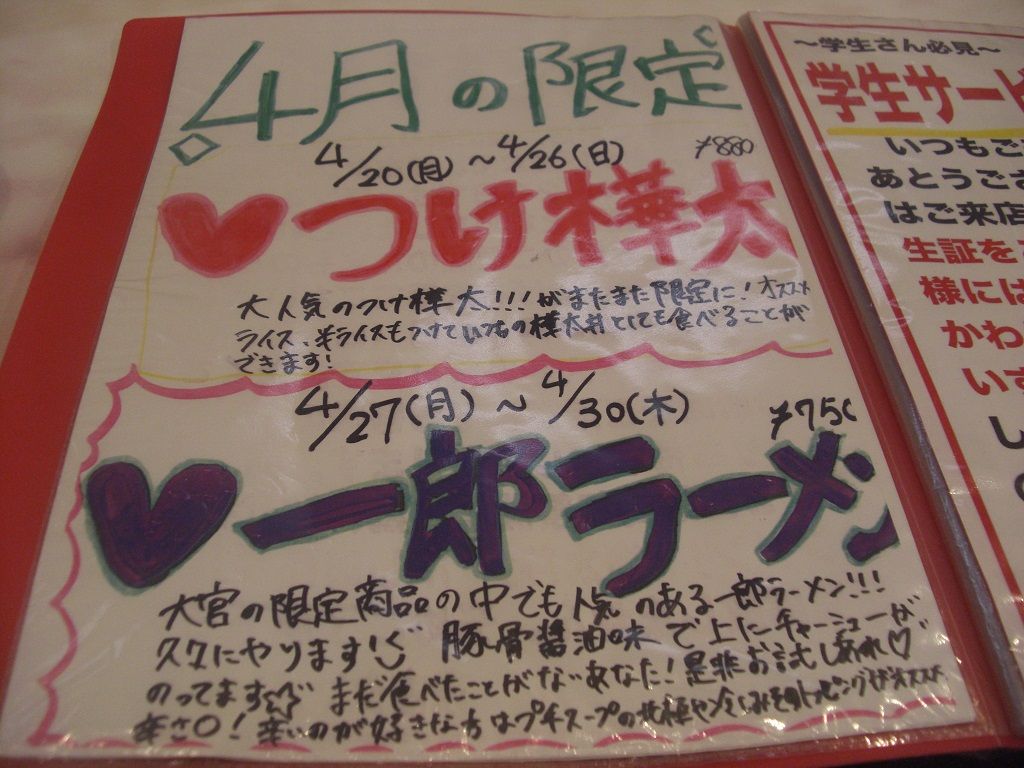 4月の限定
4/20(月)～4/26(日) ¥880
つけ樺太
大人気のつけ樺太!!!がまたまた限定に!オススメ
ライス、半ライスもつけていつもの樺太丼としても食べることが
できます!
4/27(月)～4/30(木) ¥750
一郎ラーメン
大宮の限定商品の中でも人気のある一郎ラーメン!!!
久々にやります! 豚骨醤油味で上にチャーシューが
のってます まだ食べたことがないあなた!是非お試しあれ♡
辛さ0!辛いのが好きな方はプチスープの北極や冷しみそのトッピングがオススメ
～学生さん必見～
学生サービ
いつもご
あとうござ
はご来店
生証を
様には
かわ
いず
し